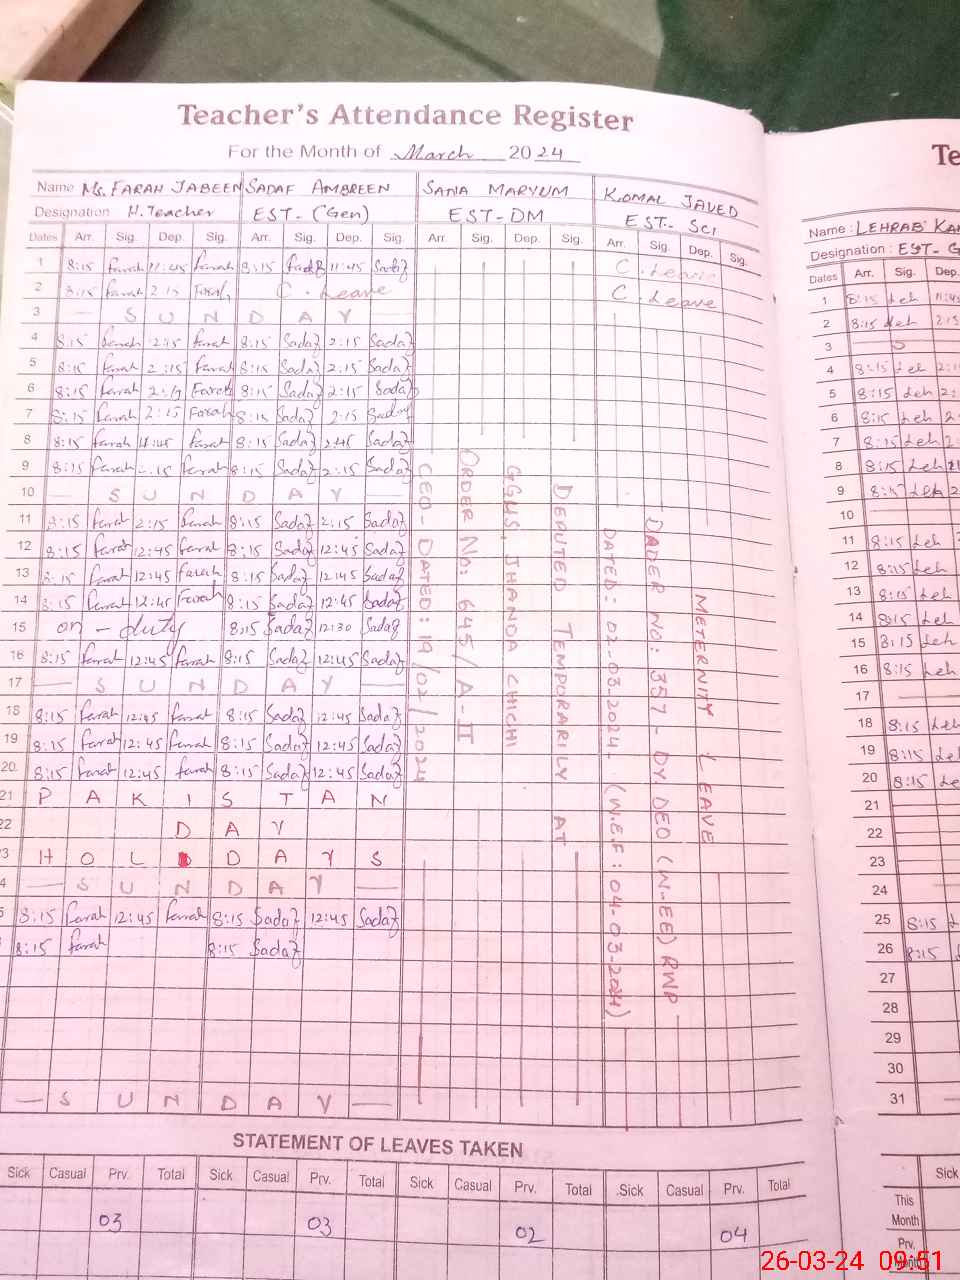 Teacher's Attendance Register
For the Month of March 2024
Name Ms. FARAH JABEEN SADAF AMBREEN SANA MARYUM KOMAL JAVED
Designation H. Teacher EST-(Gen) EST-DM EST- Sci
Dates Arr. Sig. Dep. Sig. Arr. Sig. Dep. Sig. Arr. Sig. Dep. Sig. Arr. Sig. Dep. Sig.
1 8:15 Farah 11:45 Farah 8:15 Sadaf 11:45 Sadaf C. Leave
2 8:15 Farah 2:15 Farah C. Leave C. Leave
3 — S U N D A Y —
4 8:15 Farah 2:15 Farah 8:15 Sadaf 2:15 Sadaf
5 8:15 Farah 2:15 Farah 8:15 Sadaf 2:15 Sadaf
6 8:15 Farah 2:15 Farah 8:15 Sadaf 2:15 Sadaf
7 8:15 Farah 2:15 Farah 8:15 Sadaf 2:15 Sadaf
8 8:15 Farah 11:45 Farah 8:15 Sadaf Sadaf
9 8:15 Farah Farah 8:15 Sadaf 2:15 Sadaf
10 — S U N D A Y —
11 8:15 Farah 2:15 Farah 8:15 Sadaf 2:15 Sadaf
12 8:15 Farah 12:45 Farah 8:15 Sadaf 12:45 Sadaf
13 8:15 Farah 12:45 Farah 8:15 Sadaf 12:45 Sadaf
14 8:15 Farah 12:45 Farah 8:15 Sadaf 12:45 Sadaf
15 on - duty 8:15 Sadaf 12:30 Sadaf
16 8:15 Farah 12:45 Farah 8:15 Sadaf 12:45 Sadaf
17 — S U N D A Y —
18 8:15 Farah 12:45 Farah 8:15 Sadaf 12:45 Sadaf
19 8:15 Farah 12:45 Farah 8:15 Sadaf 12:45 Sadaf
20 8:15 Farah 12:45 Farah 8:15 Sadaf 12:45 Sadaf
21 P A K I S T A N
22 D A Y
3 H O L D A Y S
4 — S U N D A Y —
5 8:15 Farah 12:45 Farah 8:15 Sadaf 12:45 Sadaf
8:15 Farah 8:15 Sadaf
— S U N D A Y —
DEPUTED TEMPORARILY AT
GGHS, JHANDA CHICHI
ORDER NO: 645/A-II
CEO-DATED: 19/02/2024
METERNITY LEAVE
ORDER NO: 357 - DY DEO (W-EE) RWP
DATED: 02-03-2024- (W.E.F: 04-03-2024)
STATEMENT OF LEAVES TAKEN
Sick Casual Prv. Total Sick Casual Prv. Total Sick Casual Prv. Total Sick Casual Prv. Total
03 03 02 04
Te
Name : LEHRAB KA
Designation : EST- G
Dates Arr. Sig. Dep.
1 8:15 Leh 11:45
2 8:15 Leh 2:15
3 S
4 8:15 Leh
5 8:15 Leh
6 8:15 Leh
7 8:15 Leh
8 8:15 Leh
9 8:15 Leh
10
11 8:15 Leh
12 8:15 Leh
13 8:15 Leh
14 8:15 Leh
15 8:15 Leh
16 8:15 Leh
17
18 8:15 Leh
19 8:15 Le
20 8:15 Le
21
22
23
24
25 8:15 L
26 8:15
27
28
29
30
31
Sick
This
Month
Prv.
Month
26-03-24 09:51